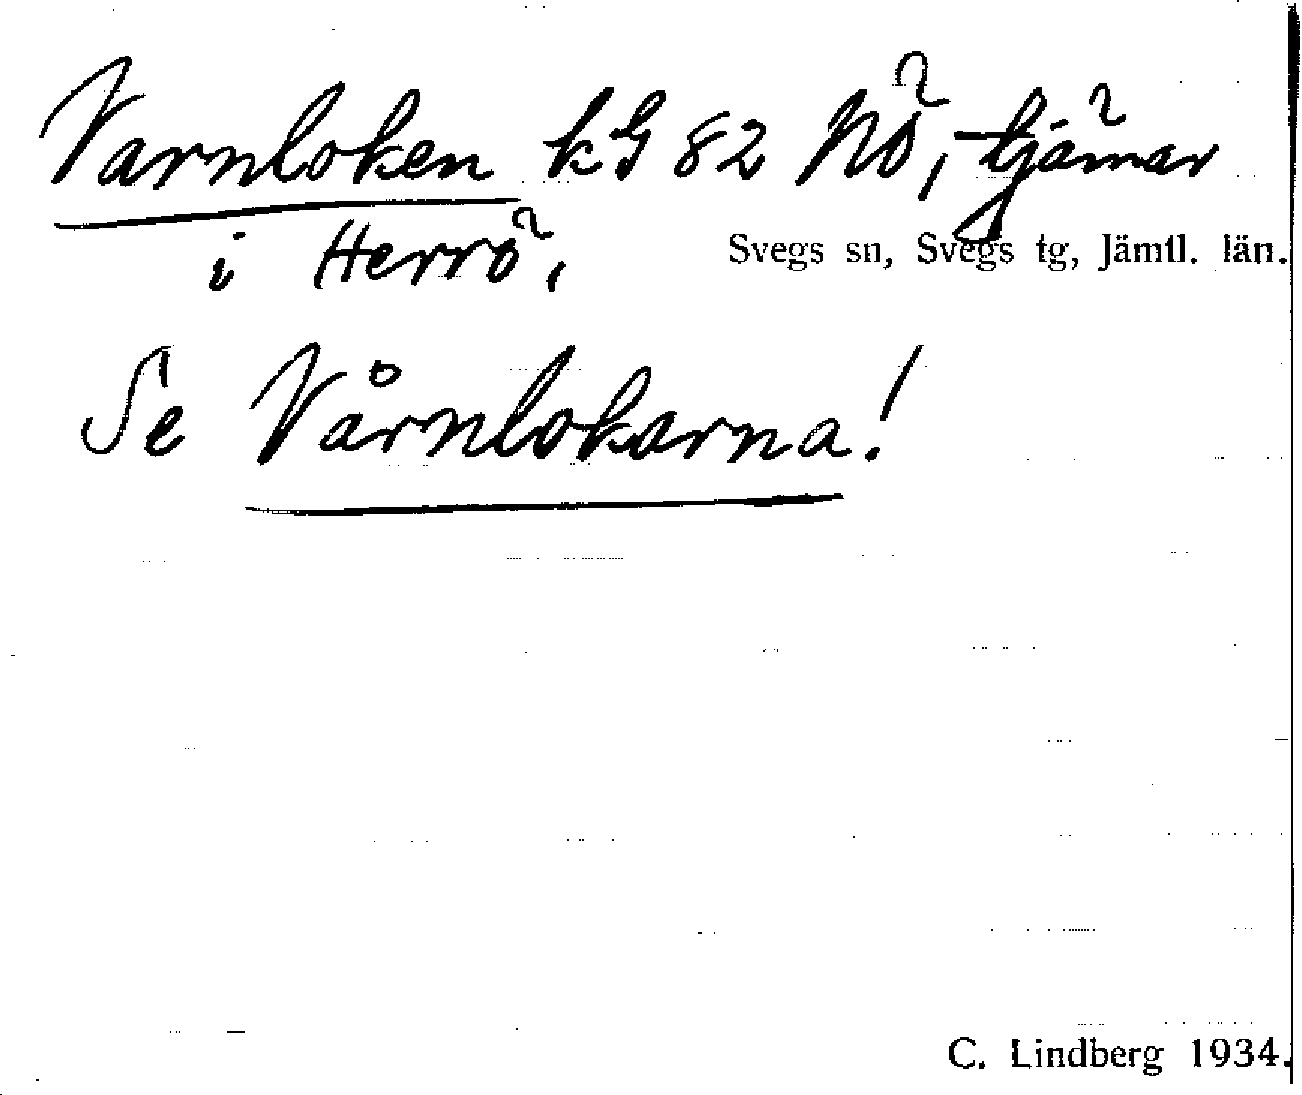 Varnloken kG 82 NÖ, tjärnar
i Herrö,
Svegs sn, Svegs tg, Jämtl. län.
Se Vårnlokarna!
C. Lindberg 1934.